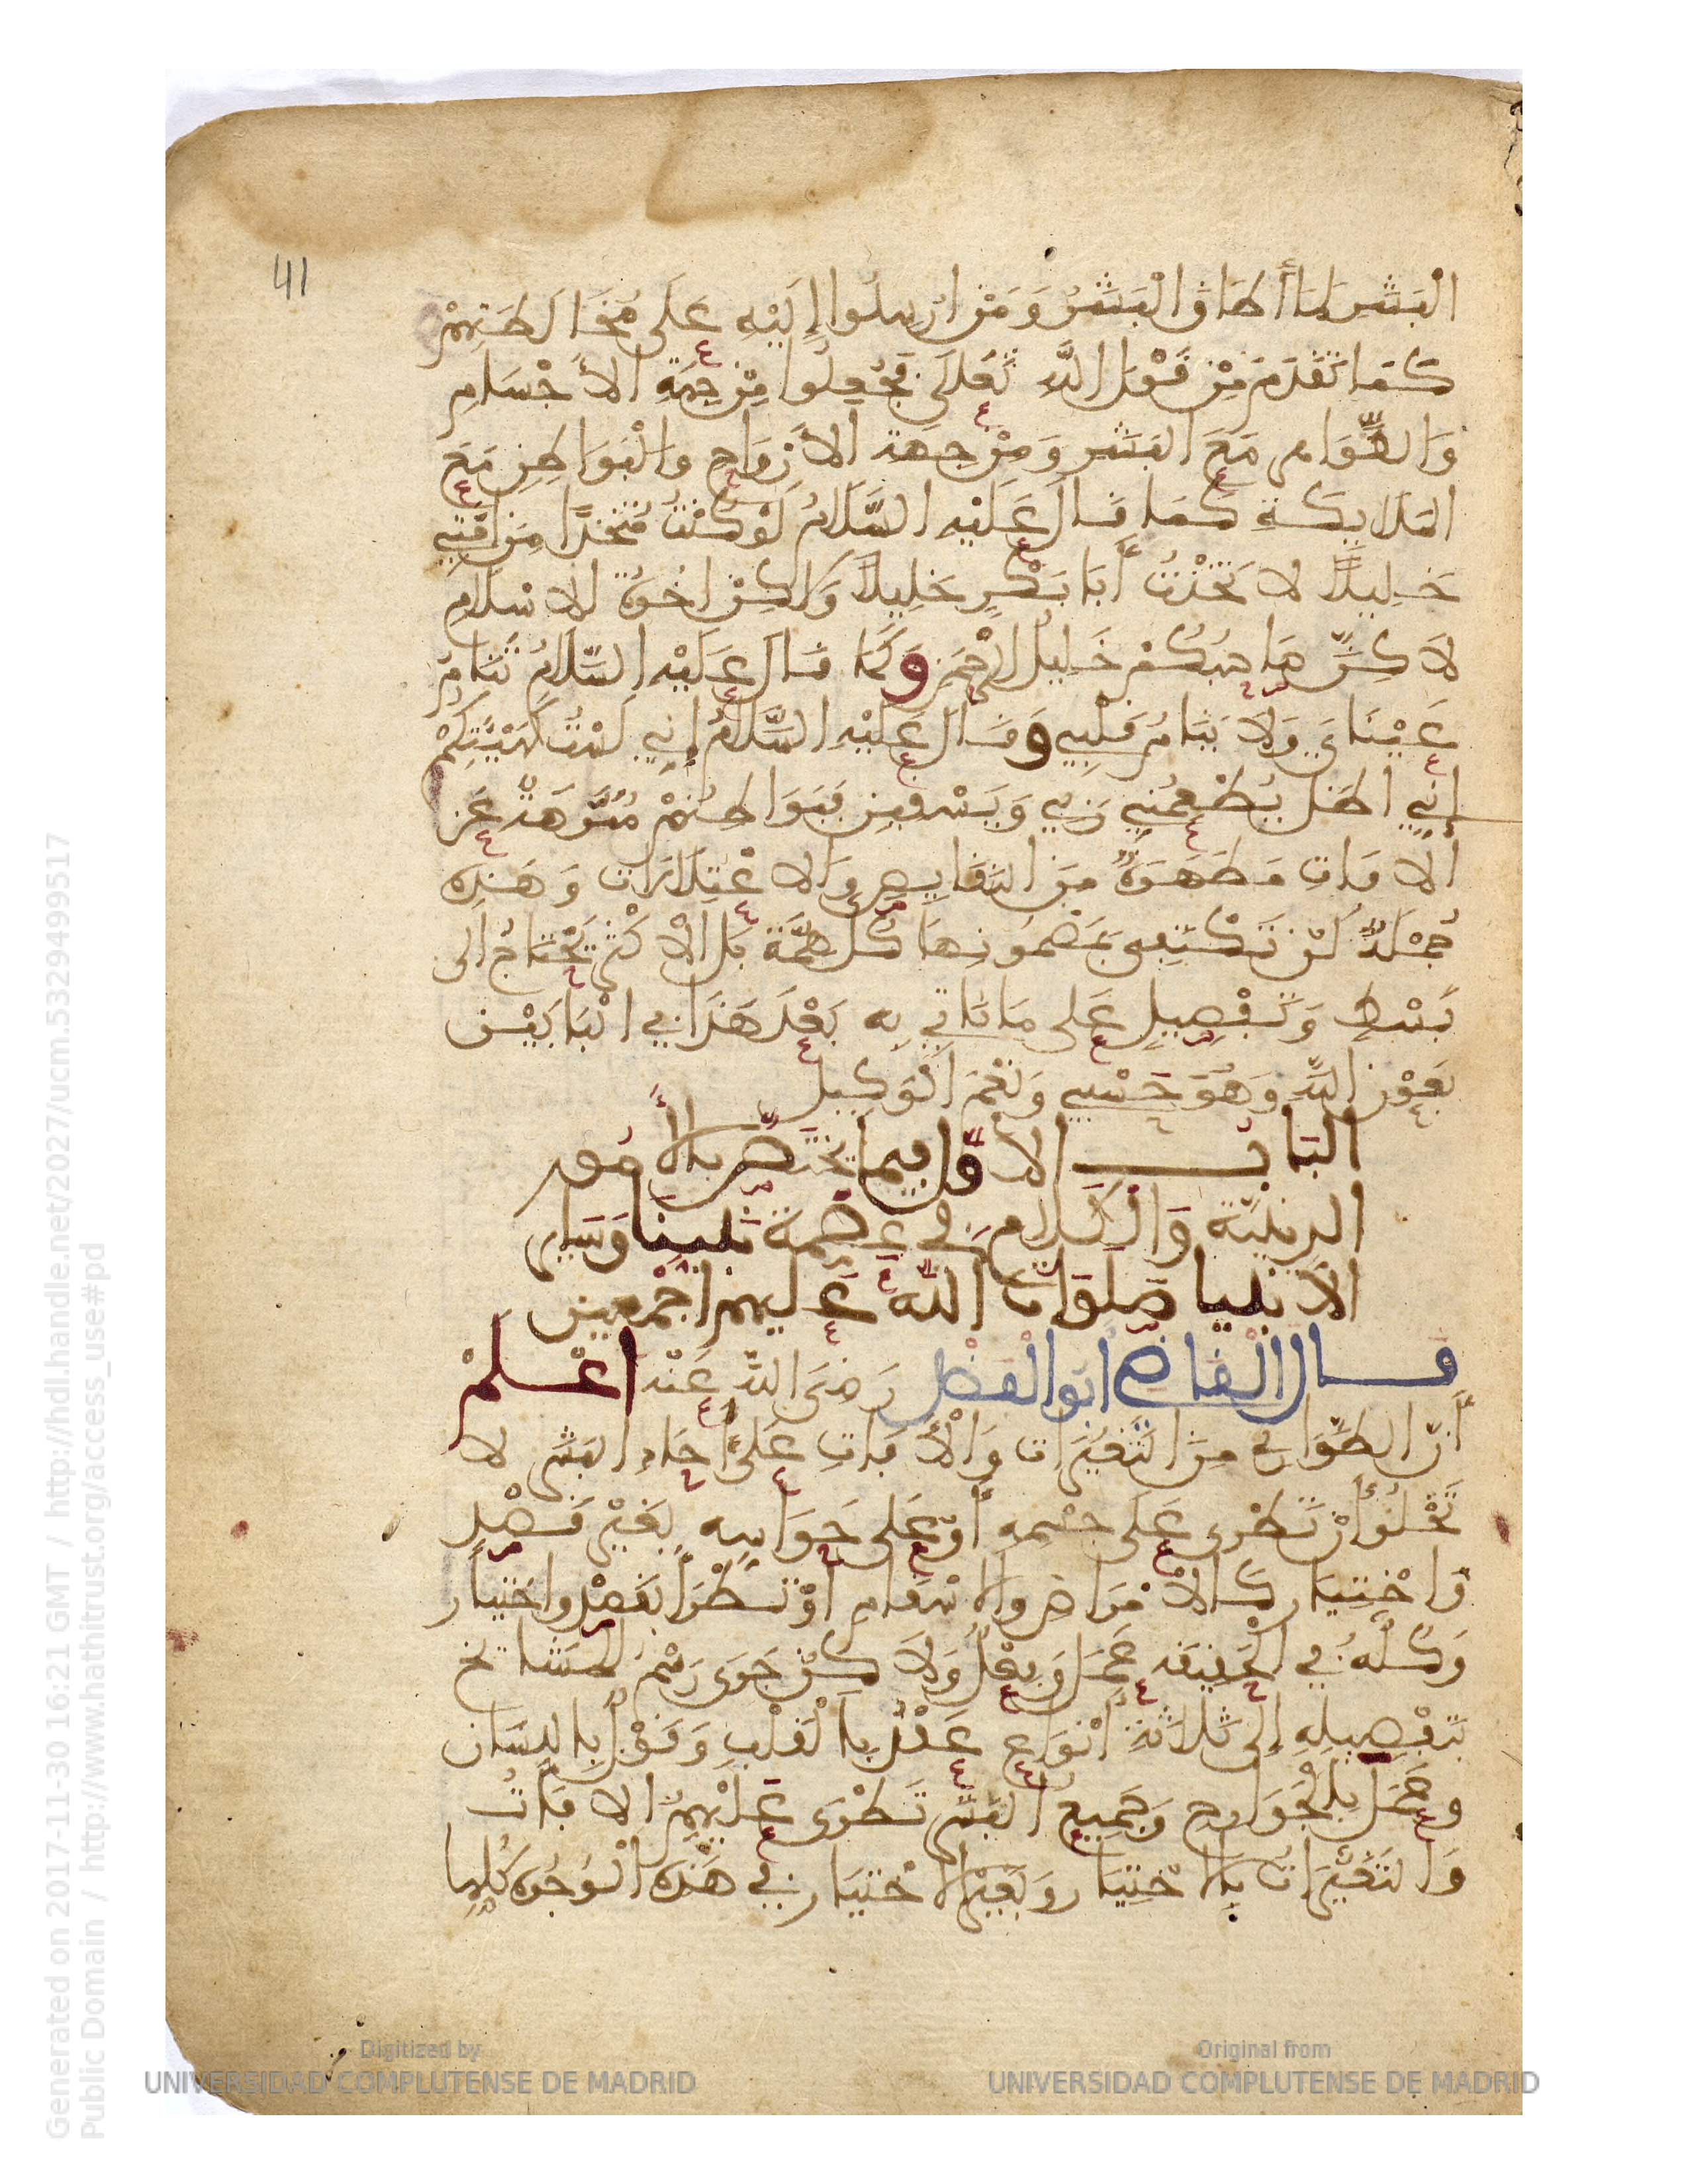 41
الْبَشَرِ لمَا أطَاقَ الْبَشَرُ وَمَنْ ارْسِلُوا إِلَيْهِ عَلَى مُخَالَطَتِهِمْ
كَمَا تَقَدَمَ مِنْ قَوْلِ اللَّهِ تَعَلَى فَجُعِلُوا مِنْ جِهَةِ الأَجْسَامِ
وَالظَّوَاهِرِ مَعَ البَشَرِ وَمِنْ جِهَةِ الأَرْوَاحِ وَالْبَوَاطِنِ مَعَ
المَلَايِكَةِ كَمَا قَالَ عَلَيْهِ السَّلَامُ لَوْ كُنْتُ مُتَّخِذًا مِنَ امَّتِي
خَلِيلًا لَاتَّخَذْتُ أَبَا بَكْرٍ خَلِيلًا وَلَكِنْ اخُوَّةُ الاسْلَامِ
لَاكِنَّ صَاحِبَكُمْ خَلِيلُ الرَّحْمَنِ وَكَمَا قَالَ عَلَيْهِ السَّلَامُ تَنَامُ
عَيْنَايَ وَلَا يَنَامُ قَلْبِي وَقَالَ عَلَيْهِ السَّلَامُ إِنِي لَسْتُ كَهَيْئَتِكُمْ
إِنِي اظَلُّ يُطْعِمُنِي رَبِي وَيَسْقِينِ فَبَوَاطِنُهُمْ مُنَزَّهَةٌ عَنِ
الافَاتِ مُطَهَّرَةٌ مِنَ النَقَايِصِ وَالاعْتِلَالَاتِ وَهَذِهِ
جُمْلَةٌ لَنْ تَكْتَفِيَ بِمَضْمُونِهَا كُلُّ هِمَّةٍ بَلِ الْأكْثَرُ يَحْتَاجُ الَى
بَسْطٍ وَتَفْصِيلٍ عَلَى مَا نَاتِي بِهِ بَعْدَ هَذَا فِي الْبَابَيْنِ
بِعَوْنِ اللَّهِ وَهُوَ حَسْبِي وَنِعْمَ الْوَكِيل
البَابُ الاوَّل فِيمَا يختَصّ بالأُمُور
الدِينِيَّة وَالْكَلَامِ فِي عِصْمَة نَبِيِنَا وَسَايِر
الانبيا صَلوَاتُ اللَّه عَلَيهِمْ اجْمَعِين
قَال القَاضِي ابو الفَضْل رَضِيَ اللَّهُ عَنْهُ اعْلَمْ
أَنَّ الطَّوَارِي مِنَ التَغَيُّرَاتِ وَالْأَفَاتِ عَلَى أَحَادِ البَشَرِ لَا
تَخْلُو أَنْ تَطْرَى عَلَى جِسْمِهِ أَوْ عَلَى حَوَاسِهِ بِغَيْرِ قَصْدٍ
وَاخْتِيَارٍ كَالأَمْرَاضِ وَالاسْقَامِ أَوْ تَطْرَأ بِقَصْدٍ وَاخْتِيَار
وَكُلُّهُ فِي الْحَقِيقَةِ عَمَل وَفِعْلٌ وَلَاكِنْ جَرَى رَسْمُ المَشَايخ
بِتَفْصِيلِهِ إِلَى ثَلَاثَةِ أَنْوَاعٍ عَقْدٌ بِالْقَلْبِ وَقَوْلٌ بِاللِسَان
وعَمَل بِالْجَوَارِحِ وَجَمِيعُ الْبَشَرِ تَطْرَى عَلَيْهِمُ الافَاتُ
وَالتَغَيُّرَاتُ بِالاخْتِيَارِ وَبِغَيْرِ الاخْتِيَارِ فِي هَذِهِ الْوُجُوهِ كُلِّهَا
Generated on 2017-11-30 16:21 GMT / http://hdl.handle.net/2027/ucm.5329499517
Public Domain / http://www.hathitrust.org/access_use#pd
Digitized by
UNIVERSIDAD COMPLUTENSE DE MADRID
Original from
UNIVERSIDAD COMPLUTENSE DE MADRID